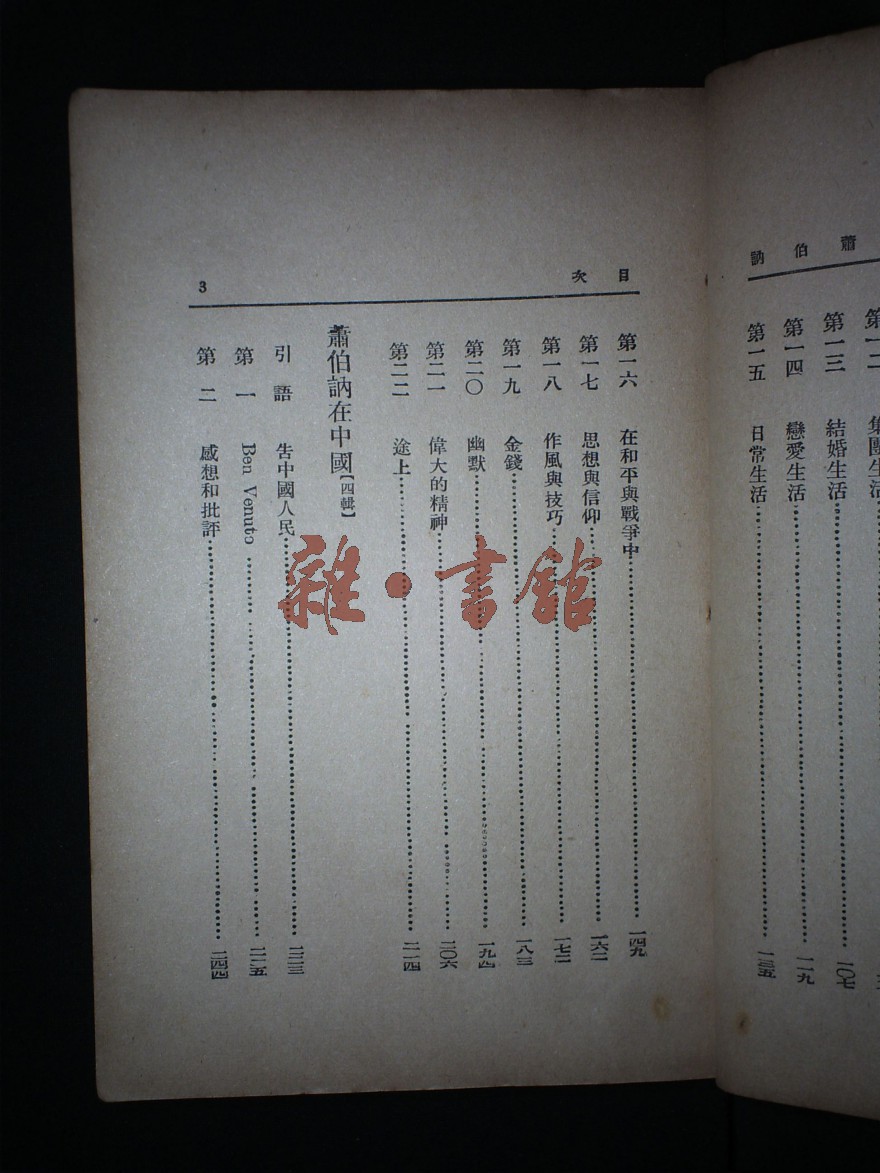 蕭伯訥
第一二 集團生活
第一三 結婚生活 一〇七
第一四 戀愛生活 一一九
第一五 日常生活 一三五
目次 3
第一六 在和平與戰爭中 一四九
第一七 思想與信仰 一六二
第一八 作風與技巧 一七二
第一九 金錢 一八三
第二〇 幽默 一九四
第二一 偉大的精神 二〇六
第二二 途上 二一四
蕭伯訥在中國【四輯】
引語 告中國人民 二二三
第一 Ben Venuto 二二五
第二 感想和批評 二四四
雜·書館